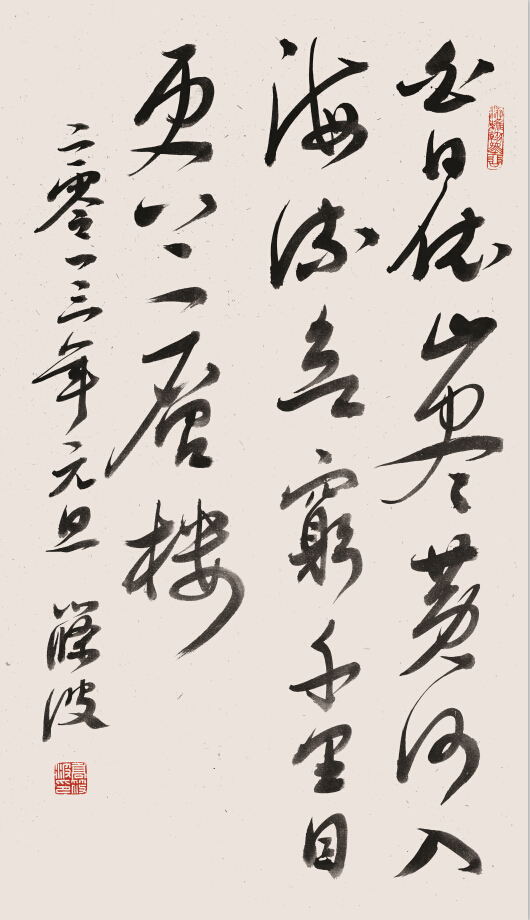 白日依山尽黄河入
海流欲窮千里目
更上一層楼
二零一三年元旦